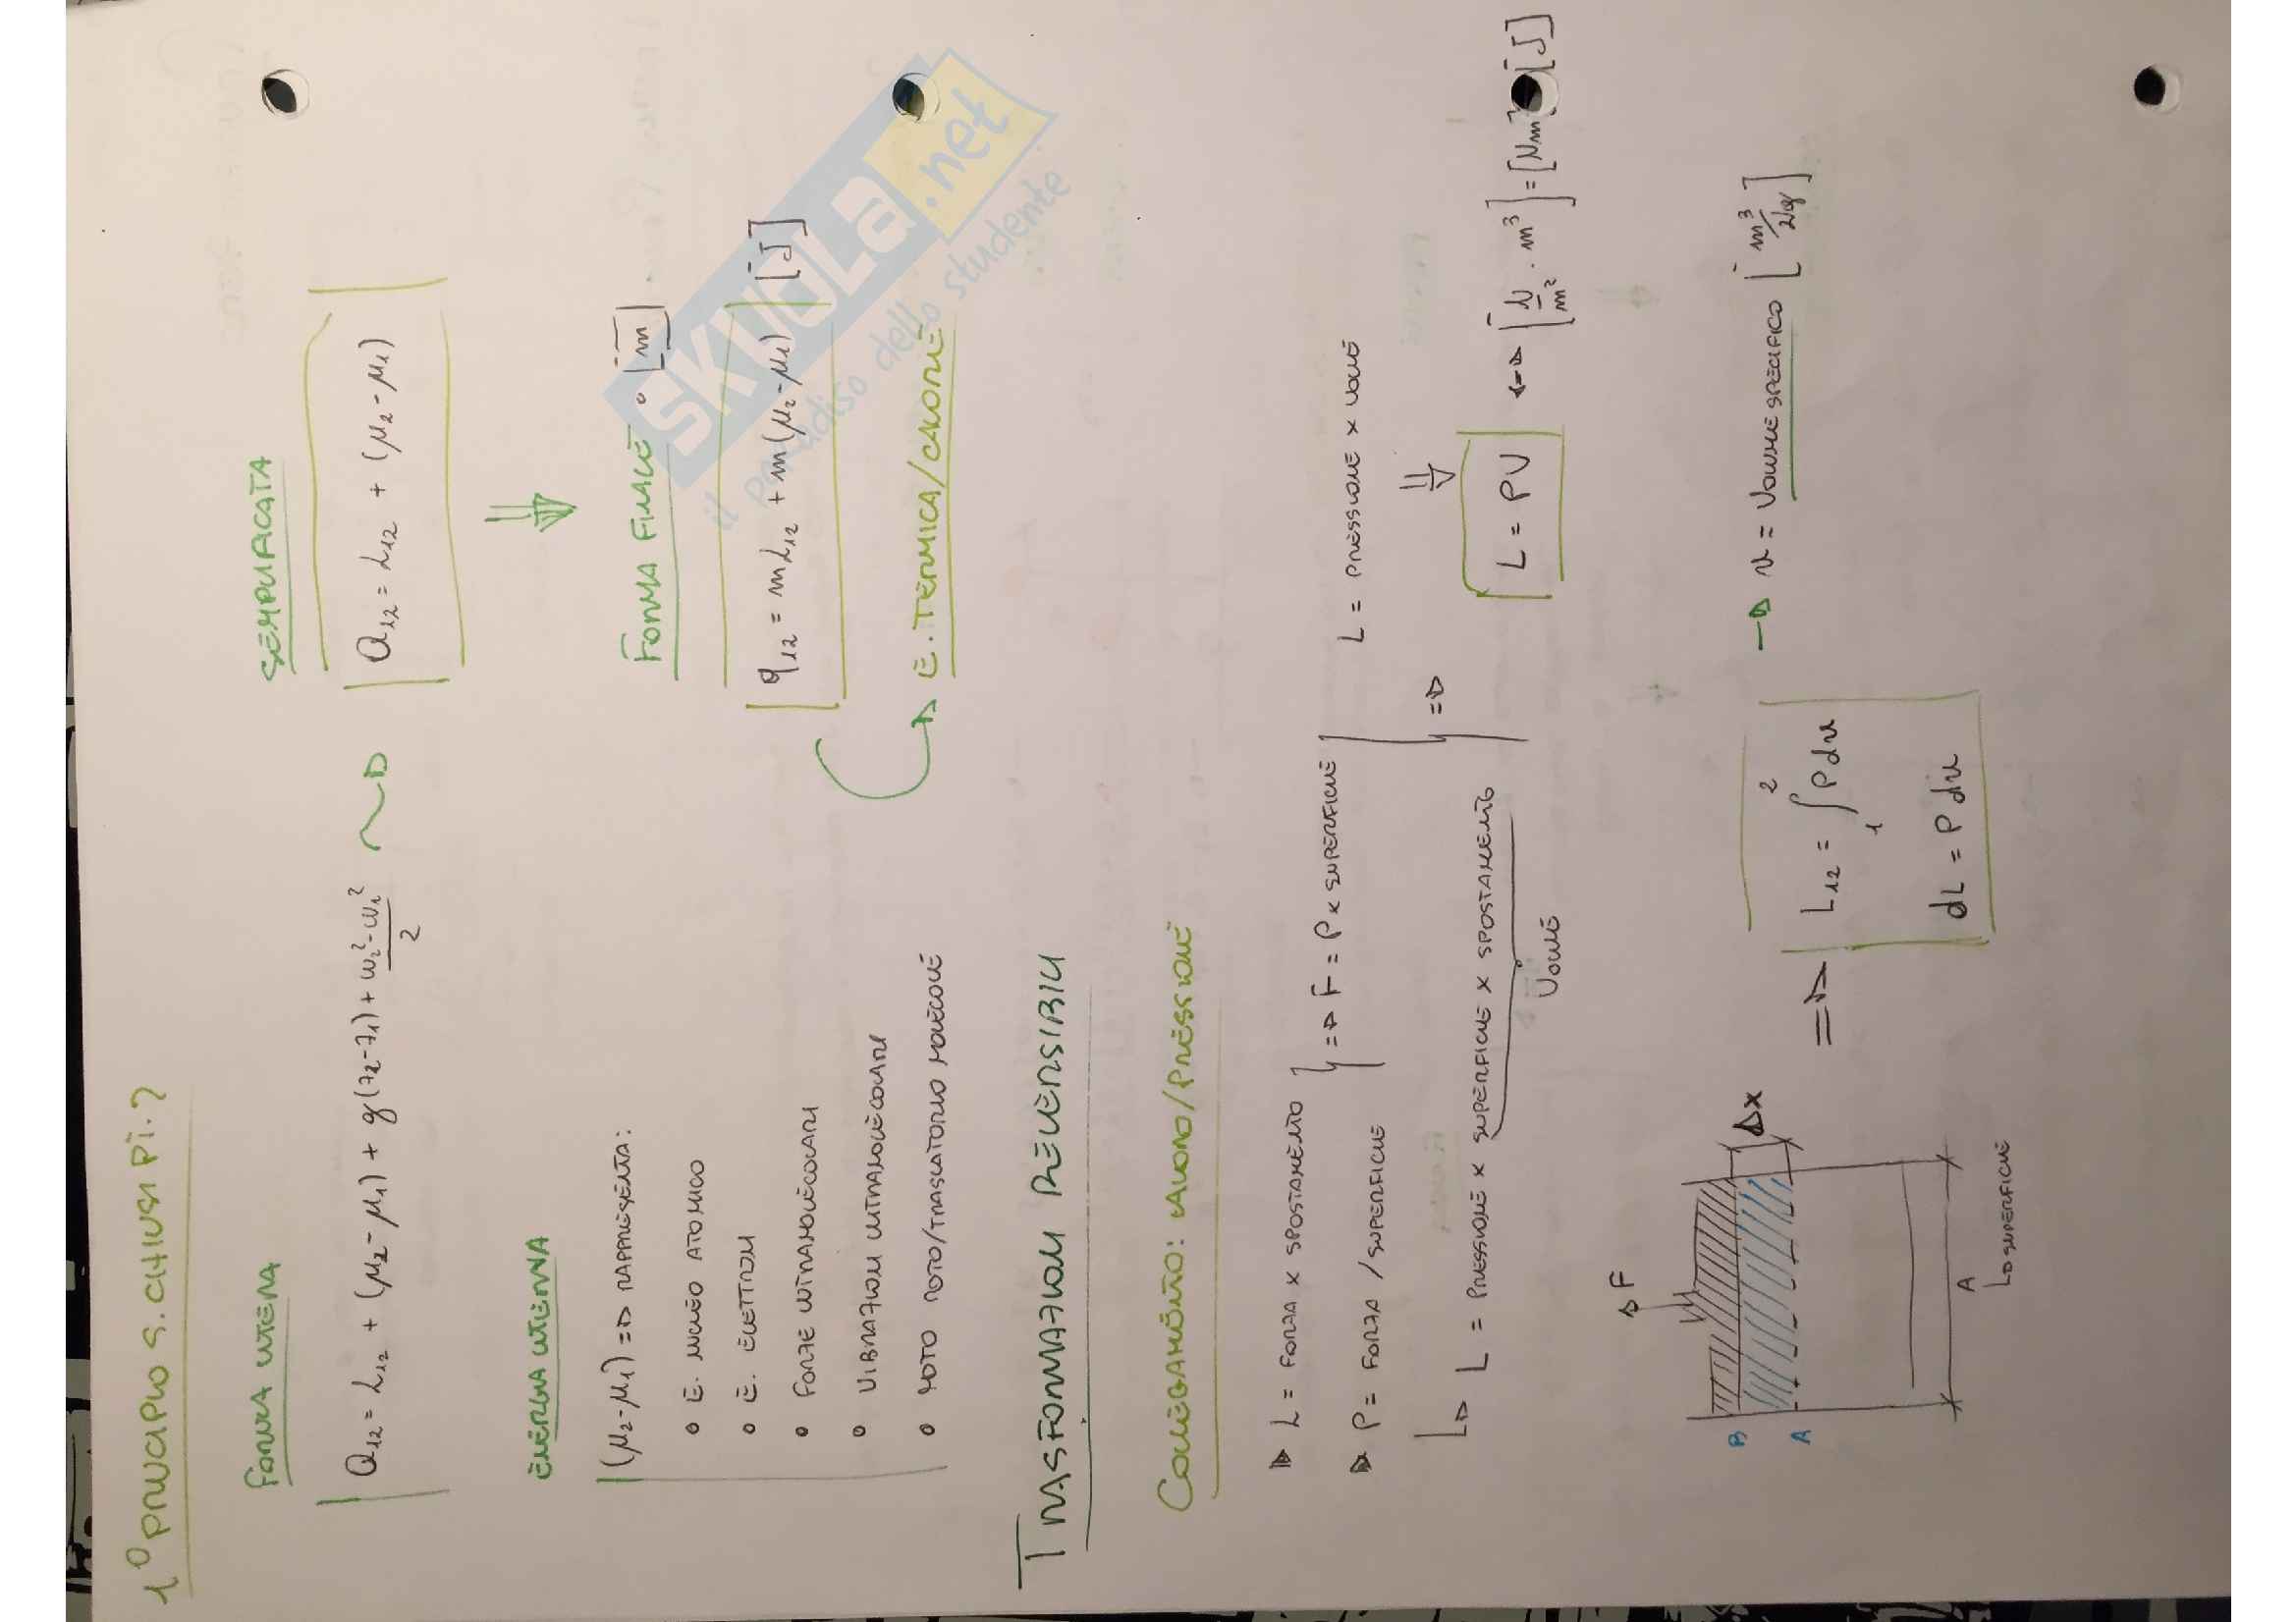 1° PRINCIPIO S. CHIUSI PT. 2
FORMA INTERA
SEMPLIFICATA
Q₁₂ = L₁₂ + (μ₂ - μ₁) + g(z₂-z₁) + w₂²-w₁²/2
Q₁₂ = L₁₂ + (μ₂ - μ₁)
ENERGIA INTERNA
FORMA FINALE [m]
(μ₂-μ₁) => RAPPRESENTA:
q₁₂ = mL₁₂ + m(μ₂-μ₁) [J]
• E. NUCLEO ATOMICO
• E. ELETTRONI
• FORZE INTRAMOLECOLARI
• VIBRAZIONI INTRAMOLECOLARI
• MOTO ROTO/TRASLATORIO MOLECOLE
E. TERMICA/CALORE
TRASFORMAZIONI REVERSIBILI
COLLEGAMENTO: LAVORO/PRESSIONE
L = FORZA x SPOSTAMENTO
P = FORZA / SUPERFICIE
=> F = P x SUPERFICIE
L = PRESSIONE x SUPERFICIE x SPOSTAMENTO
VOLUME
=>
L = PRESSIONE x VOLUME
L = PV <=> [N/m² · m³] = [Nm] [J]
F
B
A
Δx
A
SUPERFICIE
=> L₁₂ = ∫₁² P dv
dL = P dv
→ v = VOLUME SPECIFICO [m³/kg]
SKUOLA.net
il paradiso dello studente